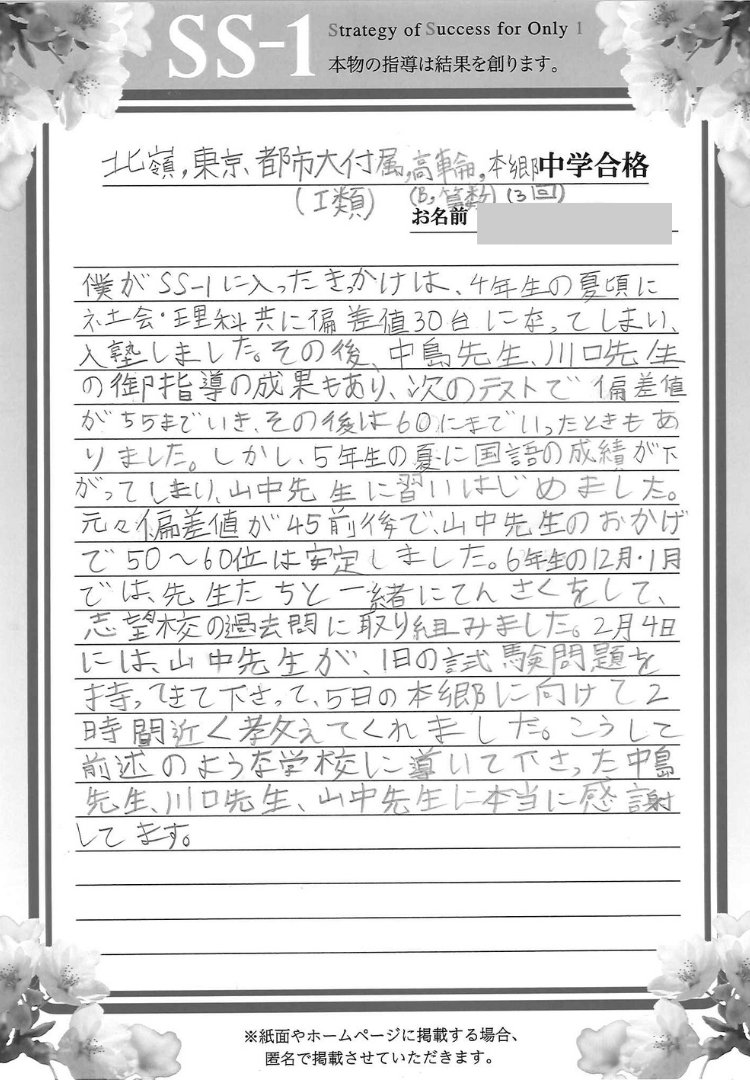 SS-1 Strategy of Success for Only 1
本物の指導は結果を創ります。
北嶺,東京都市大付属,高輪,本郷中学合格
(I類) (B,算数) (3回)
お名前
僕がSS-1に入ったきっかけは、4年生の夏頃に
社会・理科共に偏差値30台になってしまい、
入塾しました。その後、中島先生、川口先生
の御指導の成果もあり、次のテストで偏差値
が55までいき、その後は60にまでいったときもあ
りました。しかし、5年生の夏に国語の成績が下
がってしまり、山中先生に習いはじめました。
元々偏差値が45前後で、山中先生のおかげ
で50〜60位は安定しました。6年生の12月・1月
では、先生たちと一緒にてんさくをして、
志望校の過去問に取り組みました。2月4日
には、山中先生が、1日の試験問題を
持ってきて下さって、5日の本郷に向けて2
時間近く教えてくれました。こうして
前述のような学校に導いて下さった中島
先生、川口先生、山中先生に本当に感謝
してます。
※紙面やホームページに掲載する場合、
匿名で掲載させていただきます。